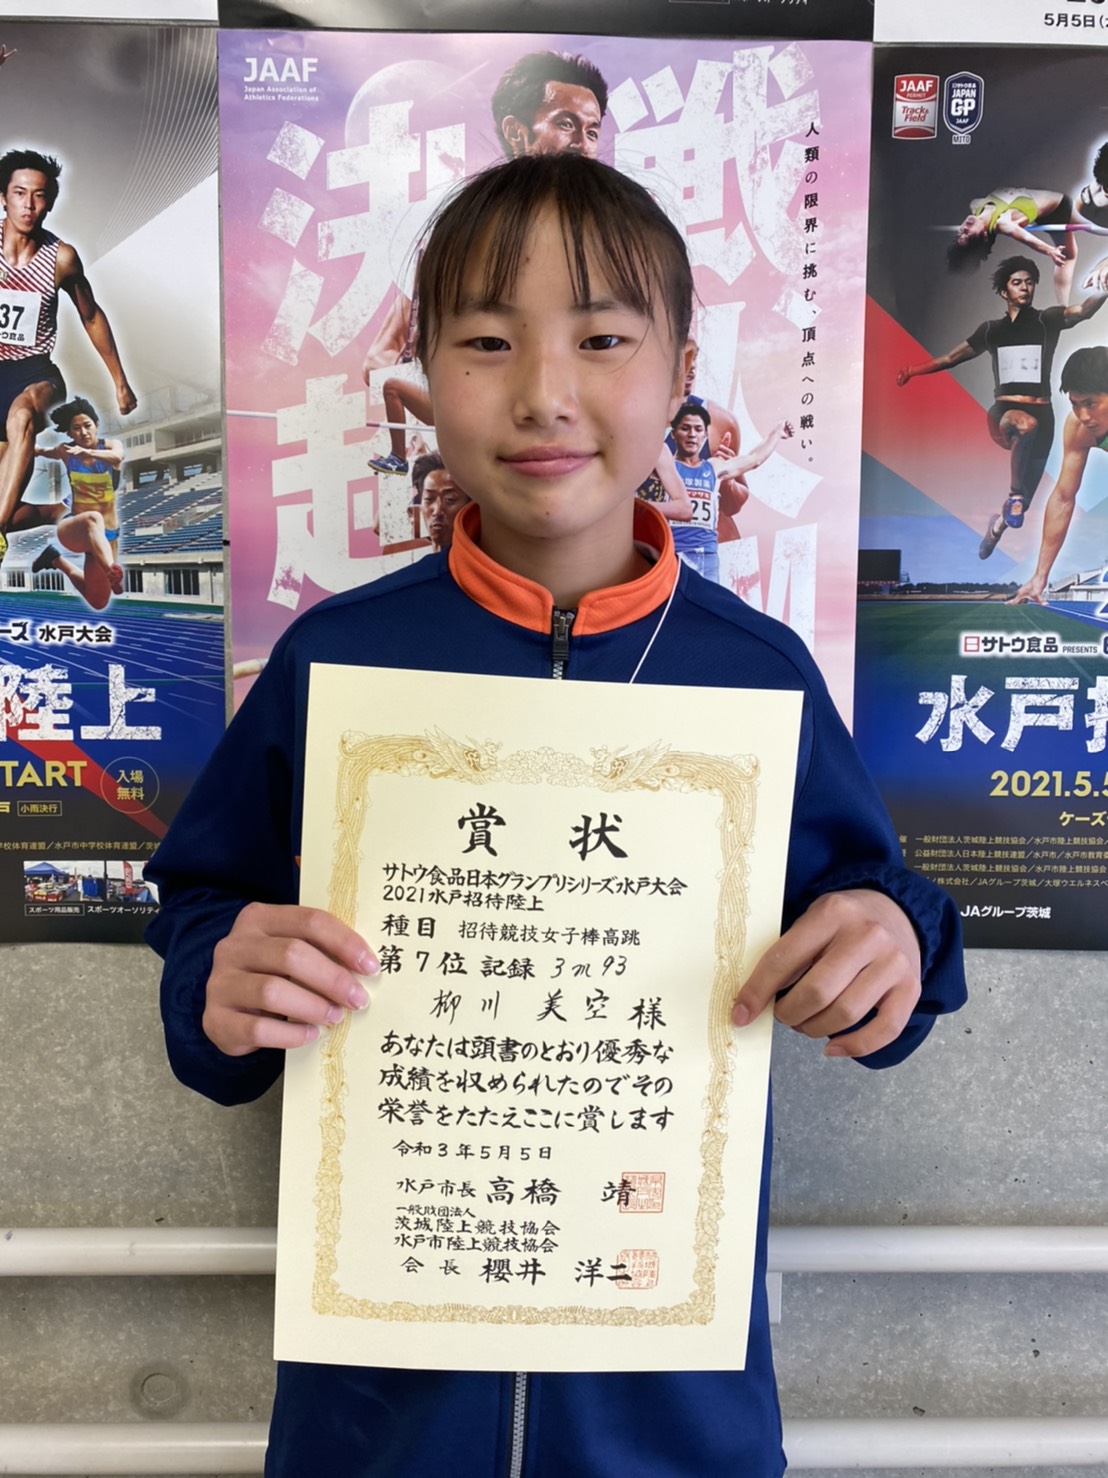 5月5日
JAAF
Japan Association of
Athletics Federations
決戦
人類の限界に挑む、頂点への戦い。
JAAF
Track&
Field
JAPAN
GP
JAAF
MITO
37
25
水戸大会
陸上
START
入場
無料
小雨決行
スポーツ用品販売
スポーツオーソリティ
日サトウ食品 PRESENTS
水戸招
2021.5.5
ケーズ
一般財団法人茨城陸上競技協会／水戸市陸上競技協会
公益財団法人日本陸上競技連盟／水戸市／水戸市教育委
JAグループ茨城
賞状
サトウ食品日本グランプリシリーズ水戸大会
2021水戸招待陸上
種目 招待競技女子棒高跳
第7位 記録 3m93
柳川 美空 様
あなたは頭書のとおり優秀な
成績を収められしたのでその
栄誉をたたえここに賞します
令和3年5月5日
水戸市長 高橋 靖
一般財団法人
茨城陸上競技協会
水戸市陸上競技協会
会長 櫻井 洋二